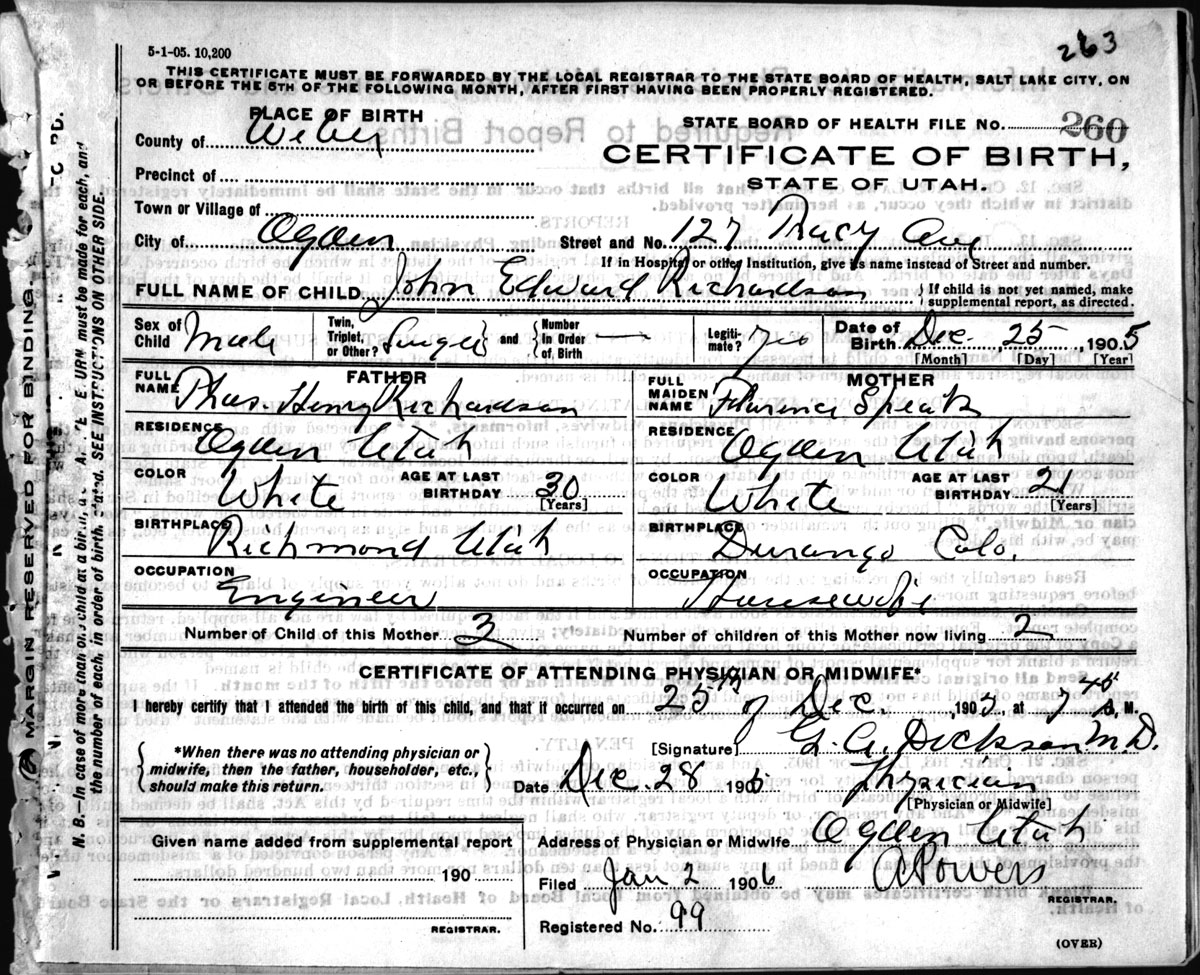 263
5-1-05. 10,200
THIS CERTIFICATE MUST BE FORWARDED BY THE LOCAL REGISTRAR TO THE STATE BOARD OF HEALTH, SALT LAKE CITY, ON
OR BEFORE THE 5TH OF THE FOLLOWING MONTH, AFTER FIRST HAVING BEEN PROPERLY REGISTERED.
PLACE OF BIRTH
STATE BOARD OF HEALTH FILE No. 260
County of Weber
CERTIFICATE OF BIRTH,
Precinct of
STATE OF UTAH.
Town or Village of
City of Ogden Street and No. 127 Tracy Ave
If in Hospital or other Institution, give its name instead of Street and number.
FULL NAME OF CHILD John Edward Richardson
If child is not yet named, make
supplemental report, as directed.
Sex of Child Male
Twin, Triplet, or Other? Single and Number in Order of Birth
Legitimate? yes
Date of Birth Dec. 25 1905
[Month] [Day] [Year]
FATHER
FULL NAME Henry Richardson
RESIDENCE Ogden Utah
COLOR White AGE AT LAST BIRTHDAY 30 [Years]
BIRTHPLACE Richmond Utah
OCCUPATION Engineer
MOTHER
FULL MAIDEN NAME Florence
RESIDENCE Ogden Utah
COLOR White AGE AT LAST BIRTHDAY 21 [Years]
BIRTHPLACE Durango Colo.
OCCUPATION Housewife
Number of Child of this Mother 3 Number of children of this Mother now living 2
CERTIFICATE OF ATTENDING PHYSICIAN OR MIDWIFE*
I hereby certify that I attended the birth of this child, and that it occurred on 25th of Dec. 1905, at 7 M.
*When there was no attending physician or
midwife, then the father, householder, etc.,
should make this return.
[Signature] Dickson M.D.
Date Dec. 28 1905 Physician
[Physician or Midwife]
Given name added from supplemental report
190
REGISTRAR.
Address of Physician or Midwife Ogden Utah
Filed Jan 2 1906 Powers
REGISTRAR.
Registered No. 99
(OVER)
MARGIN RESERVED FOR BINDING.
N. B.—In case of more than one child at a birth, must be made for each, and
the number of each, in order of birth, stated. SEE INSTRUCTIONS ON OTHER SIDE.